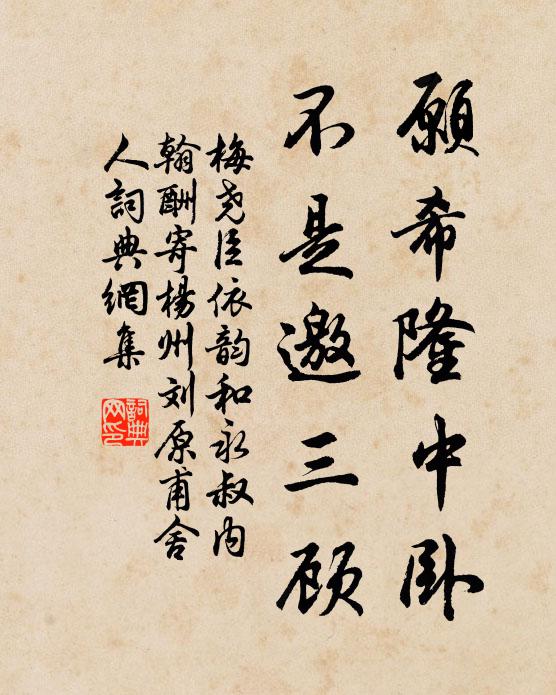 願希隆中卧
不是邀三顾
梅尧臣依韵和永叔内
翰酬寄楊州刘原甫舍
人詞典網集
詞典
网印